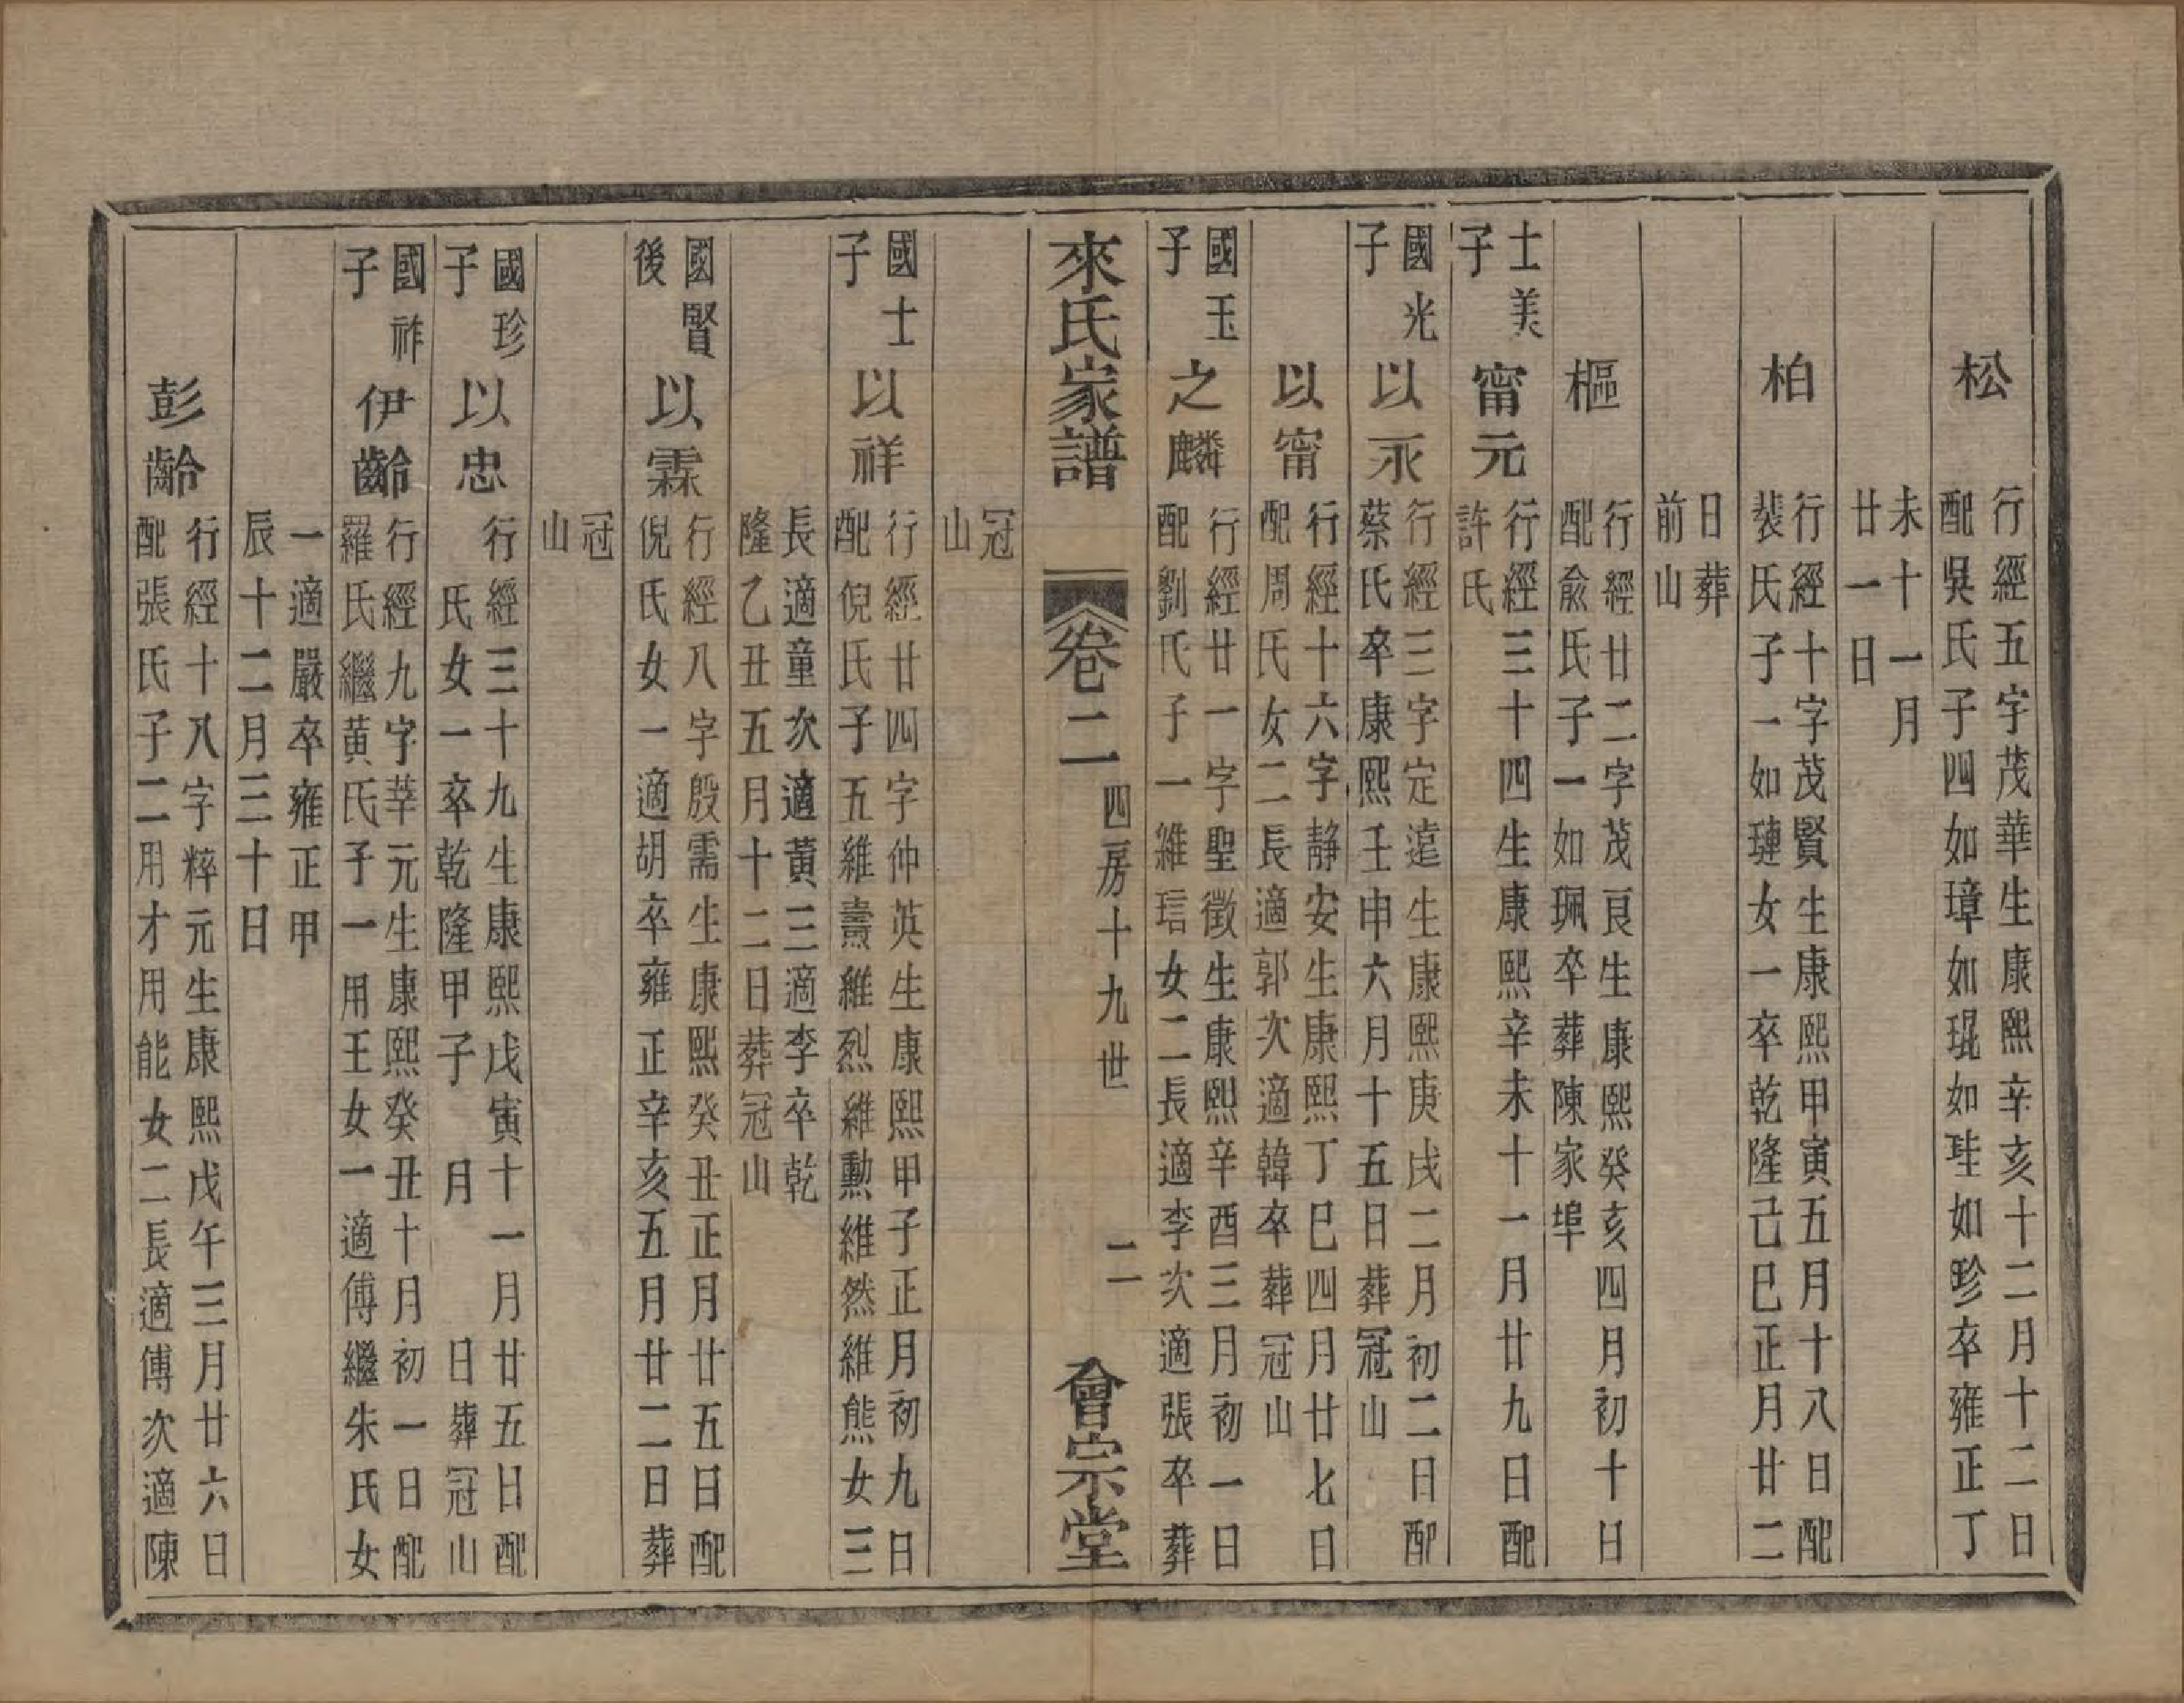 松
行經五字茂華生康熙辛亥十二月十二日
配吳氏子四如璋如琨如珪如珍卒雍正丁
未十一月
廿一日
柏
行經十字茂賢生康熙甲寅五月十八日配
裴氏子一如璉女一卒乾隆己巳正月廿二
日葬
前山
樞
行經廿二字茂良生康熙癸亥四月初十日
配俞氏子一如珮卒葬陳家埠
士美
子
甯元
行經三十四生康熙辛未十一月廿九日配
許氏
國光
子
以永
行經三字定遠生康熙庚戌二月初二日配
蔡氏卒康熙壬申六月十五日葬冠山
以甯
行經十六字靜安生康熙丁巳四月廿七日
配周氏女二長適郭次適韓卒葬冠山
國玉
子
之麟
行經廿一字聖徵生康熙辛酉三月初一日
配劉氏子一維琂女二長適李次適張卒葬
來氏家譜 卷二 四房十九世 二 會宗堂
冠
山
國士
子
以祥
行經廿四字仲英生康熙甲子正月初九日
配倪氏子五維燾維烈維勳維然維熊女三
長適童次適黃三適李卒乾
隆乙丑五月十二日葬冠山
國賢
後
以霖
行經八字殷需生康熙癸丑正月廿五日配
倪氏女一適胡卒雍正辛亥五月廿二日葬
冠
山
國珍
子
以忠
行經三十九生康熙戊寅十一月廿五日配
氏女一卒乾隆甲子 月 日葬冠山
國祚
子
伊齡
行經九字莘元生康熙癸丑十月初一日配
羅氏繼黃氏子一用王女一適傅繼朱氏女
一適嚴卒雍正甲
辰十二月三十日
彭齡
行經十八字粹元生康熙戊午三月廿六日
配張氏子二用才用能女二長適傅次適陳